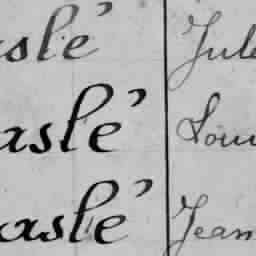 aslé Jule
aslé Loui
aslé Jean